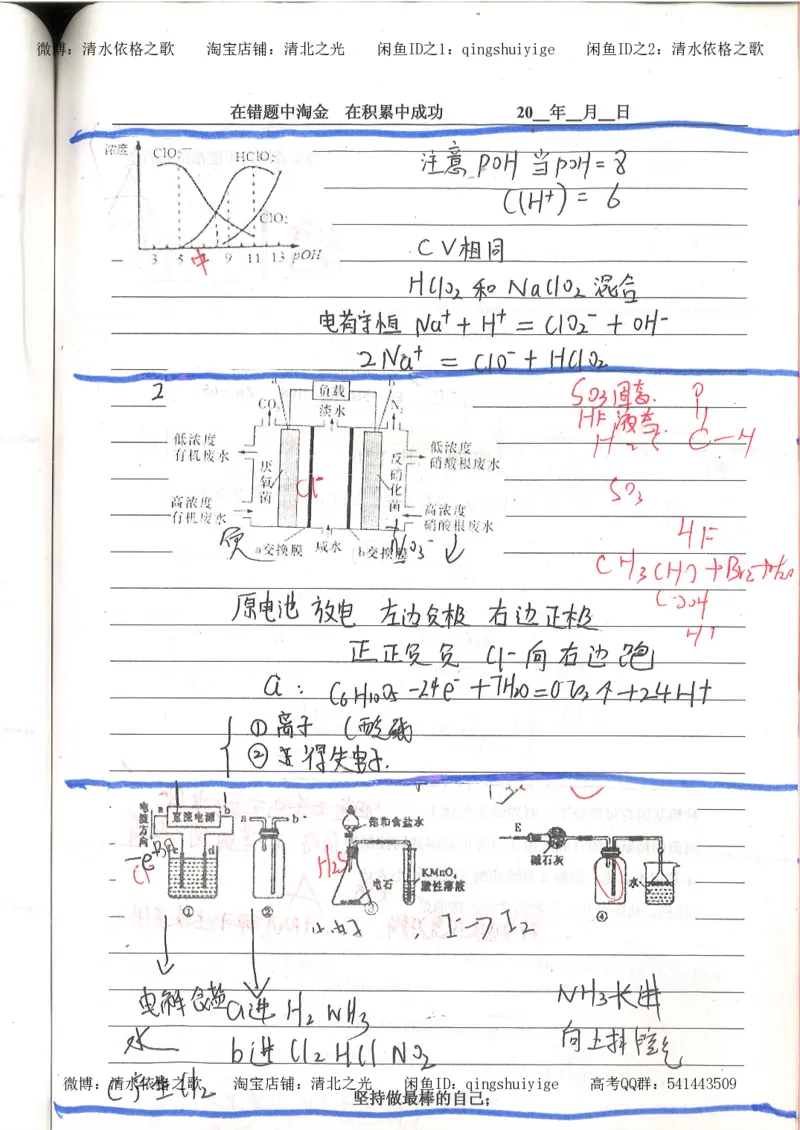 微博：清水依格之歌 淘宝店铺：清北之光 闲鱼ID之1：qingshuiyige 闲鱼ID之2：清水依格之歌
在错题中淘金 在积累中成功 20__年__月__日
浓度
ClO₂⁻ HClO₂
ClO₂
3 5 中 9 11 13 pOH
注意 pOH 当pOH=8
C(H⁺) = 6
CV相同
HClO₂ 和 NaClO₂ 混合
电荷守恒 Na⁺ + H⁺ = ClO₂⁻ + OH⁻
2Na⁺ = ClO⁻ + HClO₂
2
a 负载 b
CO₂ 淡水 N₂
低浓度
有机废水
厌氧菌
Cl⁻
反硝化菌
低浓度
硝酸根废水
高浓度
有机废水
高浓度
硝酸根废水
负
a交换膜 咸水 b交换膜
NO₃⁻
SO₃固态
HF液态
SO₃
HF
原电池 放电 左边负极 右边正极
正正负负 Cl⁻向右边跑
a: C₆H₁₀O₅ -24e⁻ +7H₂O=CO₂↑+24H⁺
① 离子 (酸碱
② 得失电子.
电流方向 a 直流电源 b
阳
Cl⁻
c d
①
a b
②
饱和食盐水
H₂S
电石
KMnO₄
酸性溶液
③
E
碱石灰
水
④
I⁻→I₂
电解食盐
水
C产生Cl₂
a进 H₂ NH₃
b进 Cl₂ HCl NO₂
NH₃长进
向上排空气
微博：清水依格之歌 淘宝店铺：清北之光 闲鱼ID：qingshuiyige 高考QQ群：541443509
坚持做最棒的自己；